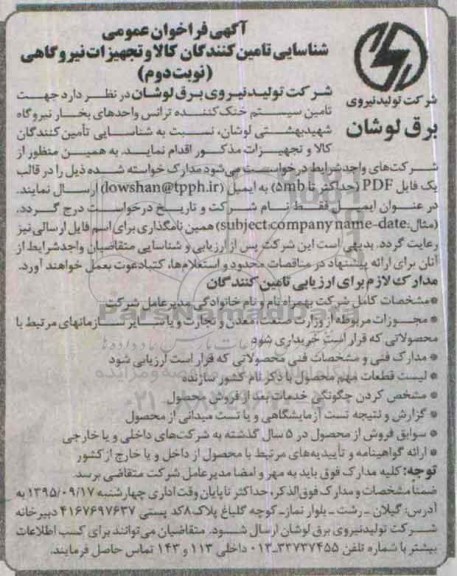 آگهی فراخوان عمومی
شناسایی تامین کنندگان کالا و تجهیزات نیروگاهی
(نوبت دوم)
شرکت تولید نیروی
برق لوشان
شرکت تولید نیروی برق لوشان در نظر دارد جهت
تامین سیستم خنک کننده ترانس واحدهای بخار نیروگاه
شهید بهشتی لوشان، نسبت به شناسایی تأمین کنندگان
کالا و تجهیزات مذکور اقدام نمایند. به همین منظور از
شرکت‌های واجد شرایط درخواست می‌شود مدارک خواسته شده ذیل را در قالب
یک فایل PDF (حداکثر تا 5mb) به ایمیل (dowshan@tpph.ir) ارسال نمایند.
در عنوان ایمیل فقط نام شرکت و تاریخ درخواست درج گردد،
(مثال: subject:company name-date) همین نامگذاری برای اسم فایل ارسالی نیز
رعایت گردد. بدیهی است این شرکت پس از ارزیابی و شناسایی متقاضیان واجد شرایط از
آنان برای ارائه پیشنهاد در مناقصات محدود و استعلام‌ها، کتبا دعوت بعمل خواهند آورد.
مدارک لازم برای ارزیابی تامین کنندگان
* مشخصات کامل شرکت بهمراه نام و نام خانوادگی مدیر عامل شرکت
* مجوزات مربوطه از وزارت صنعت، معدن و تجارت و یا سایر سازمانهای مرتبط با
محصولاتی که قرار است خریداری شود
* مدارک فنی و مشخصات فنی محصولاتی که قرار است ارزیابی شود
* لیست قطعات مهم محصول با ذکر نام کشور سازنده
* مشخص کردن چگونگی خدمات بعد از فروش محصول
* گزارش و نتیجه تست آزمایشگاهی و یا تست میدانی از محصول
* سوابق فروش از محصول در ۵ سال گذشته به شرکت‌های داخلی و یا خارجی
* ارائه گواهینامه و تأییدیه‌های مرتبط با محصول از داخل و یا خارج از کشور
توجه: کلیه مدارک فوق باید به مهر و امضا مدیر عامل شرکت متقاضی برسد.
ضمنا مشخصات و مدارک فوق‌الذکر، حداکثر تا پایان وقت اداری چهارشنبه ۱۳۹۵/۰۹/۱۷ به
آدرس: گیلان - رشت - بلوار نماز - کوچه گلباغ پلاک ۸ کد پستی ۴۱۶۷۶۹۷۶۳۷ دبیرخانه
شرکت تولید نیروی برق لوشان ارسال شود. متقاضیان می‌توانند برای کسب اطلاعات
بیشتر با شماره تلفن ۳۳۷۳۷۴۵۵-۰۱۳ داخلی ۱۱۳ و ۱۴۳ تماس حاصل فرمایند.
ParsNamadData